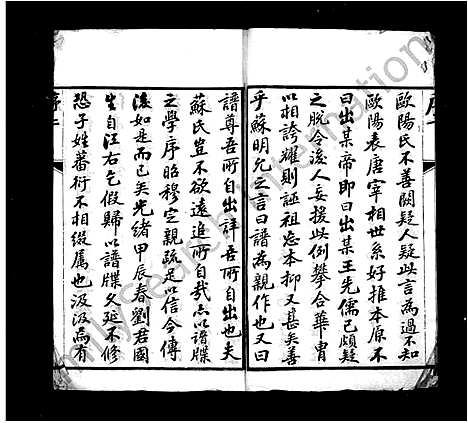 歐陽氏不善闕疑人疑此言為過不知
歐陽表唐宰相世系好推本原不
曰出某帝即曰出某王先儒已頗疑
之脫令後人妄援此例攀合華冑
以相誇耀則誣祖忘本抑又甚矣善
乎蘇明允之言曰譜為親作也又曰
譜尊吾所自出祥吾所自出也夫
蘇氏豈不欲遠追所自哉亦以譜牒
之學序昭穆定親疏足以信今傳
後如是而已矣光緒甲辰春劉君國
生自江右乞假歸以譜牒久延不修
恐子姓蕃衍不相綴屬也汲汲焉有
序
MyChinaSearch International